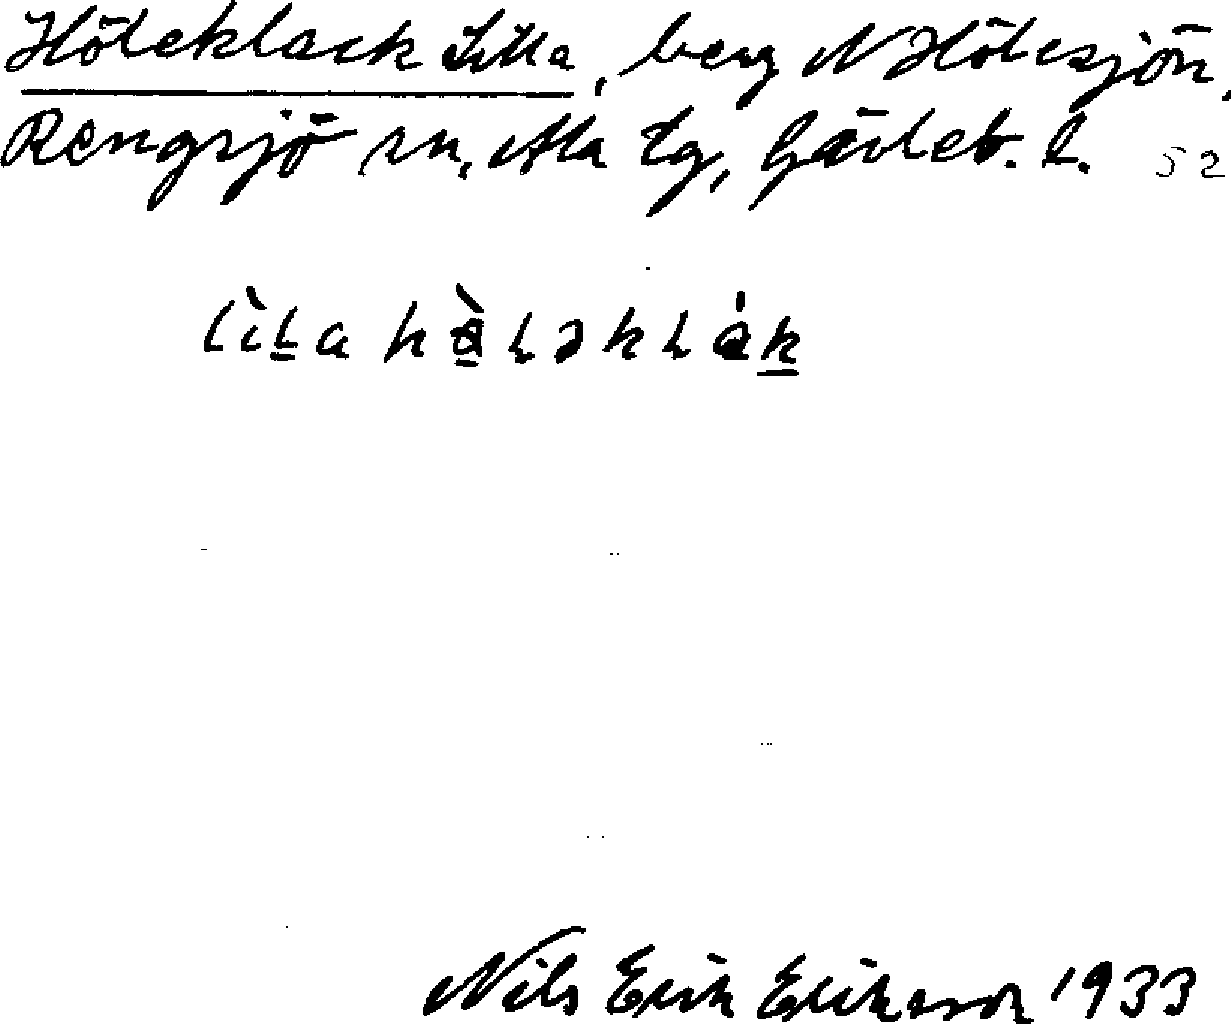 Höleklack Lilla, berg N Hölesjön,
Rengsjö sn, Ala tg, Gävleb. l. 52
Nils Erik Eriksson 1933